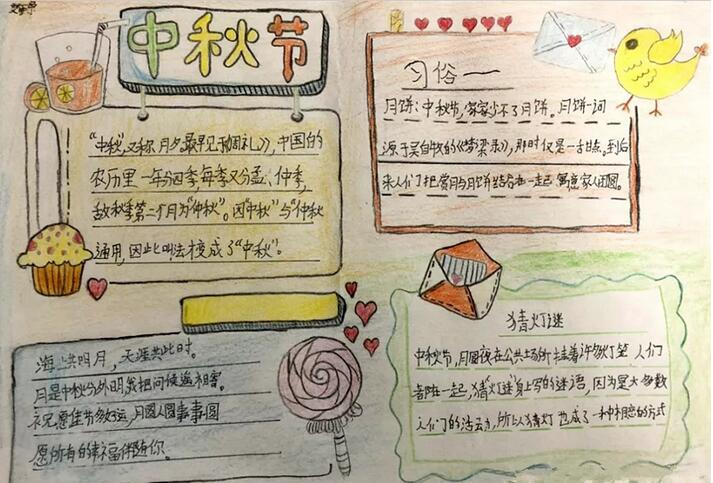 中秋节
"中秋"又称月夕,最早见于《周礼》,中国的
农历里一年分四季,每季又分孟、仲季,
故秋季第二个月为"仲秋"。因"中秋"与"仲秋
通用,因此叫法变成了"中秋"。
海上共明月,天涯共此时。
月是中秋分外明,我把问候遥相寄。
祝愿佳节多好运,月圆人圆事事圆
愿所有的幸福伴随你。
习俗一
月饼:中秋节,家家少不了月饼。月饼一词
源于吴自牧的《梦梁录》,那时仅是一舌甘点。到后
来人们把赏月与月饼结合在一起,寓意家人团圆。
猜灯谜
中秋节,月圆夜在公共场所挂着许多灯笼,人们
都在一起,猜灯笼身上写的谜语,因为是大多数
人们的活动,所以猜灯也成了一种相恋的方式